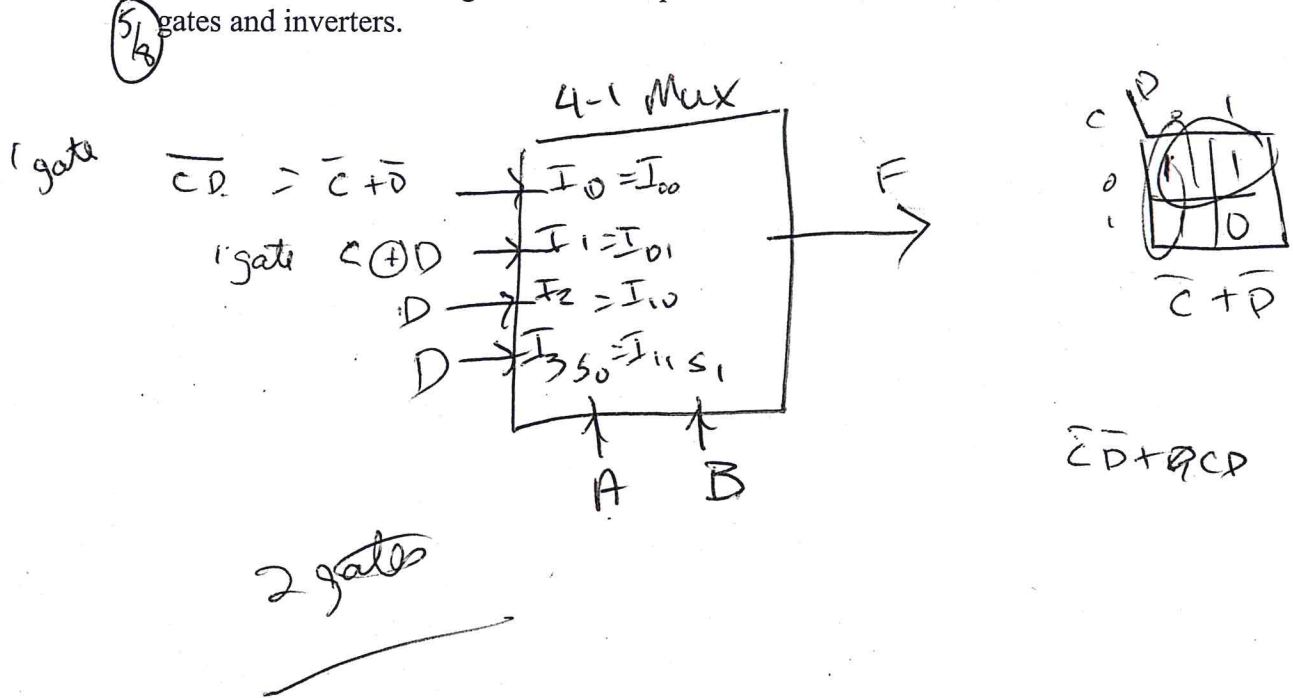 5/8 gates and inverters.
4-1 Mux
1 gate C̅D̅ = C̅ + D̅ I0 = I00
1 gate C ⊕ D I1 = I01
D I2 = I10
D I3 = I11
S0 S1
A B
F
2 gates
D
C 0 1
0 1 1
1 0
C̅ + D̅
C̅ D̅ + CD